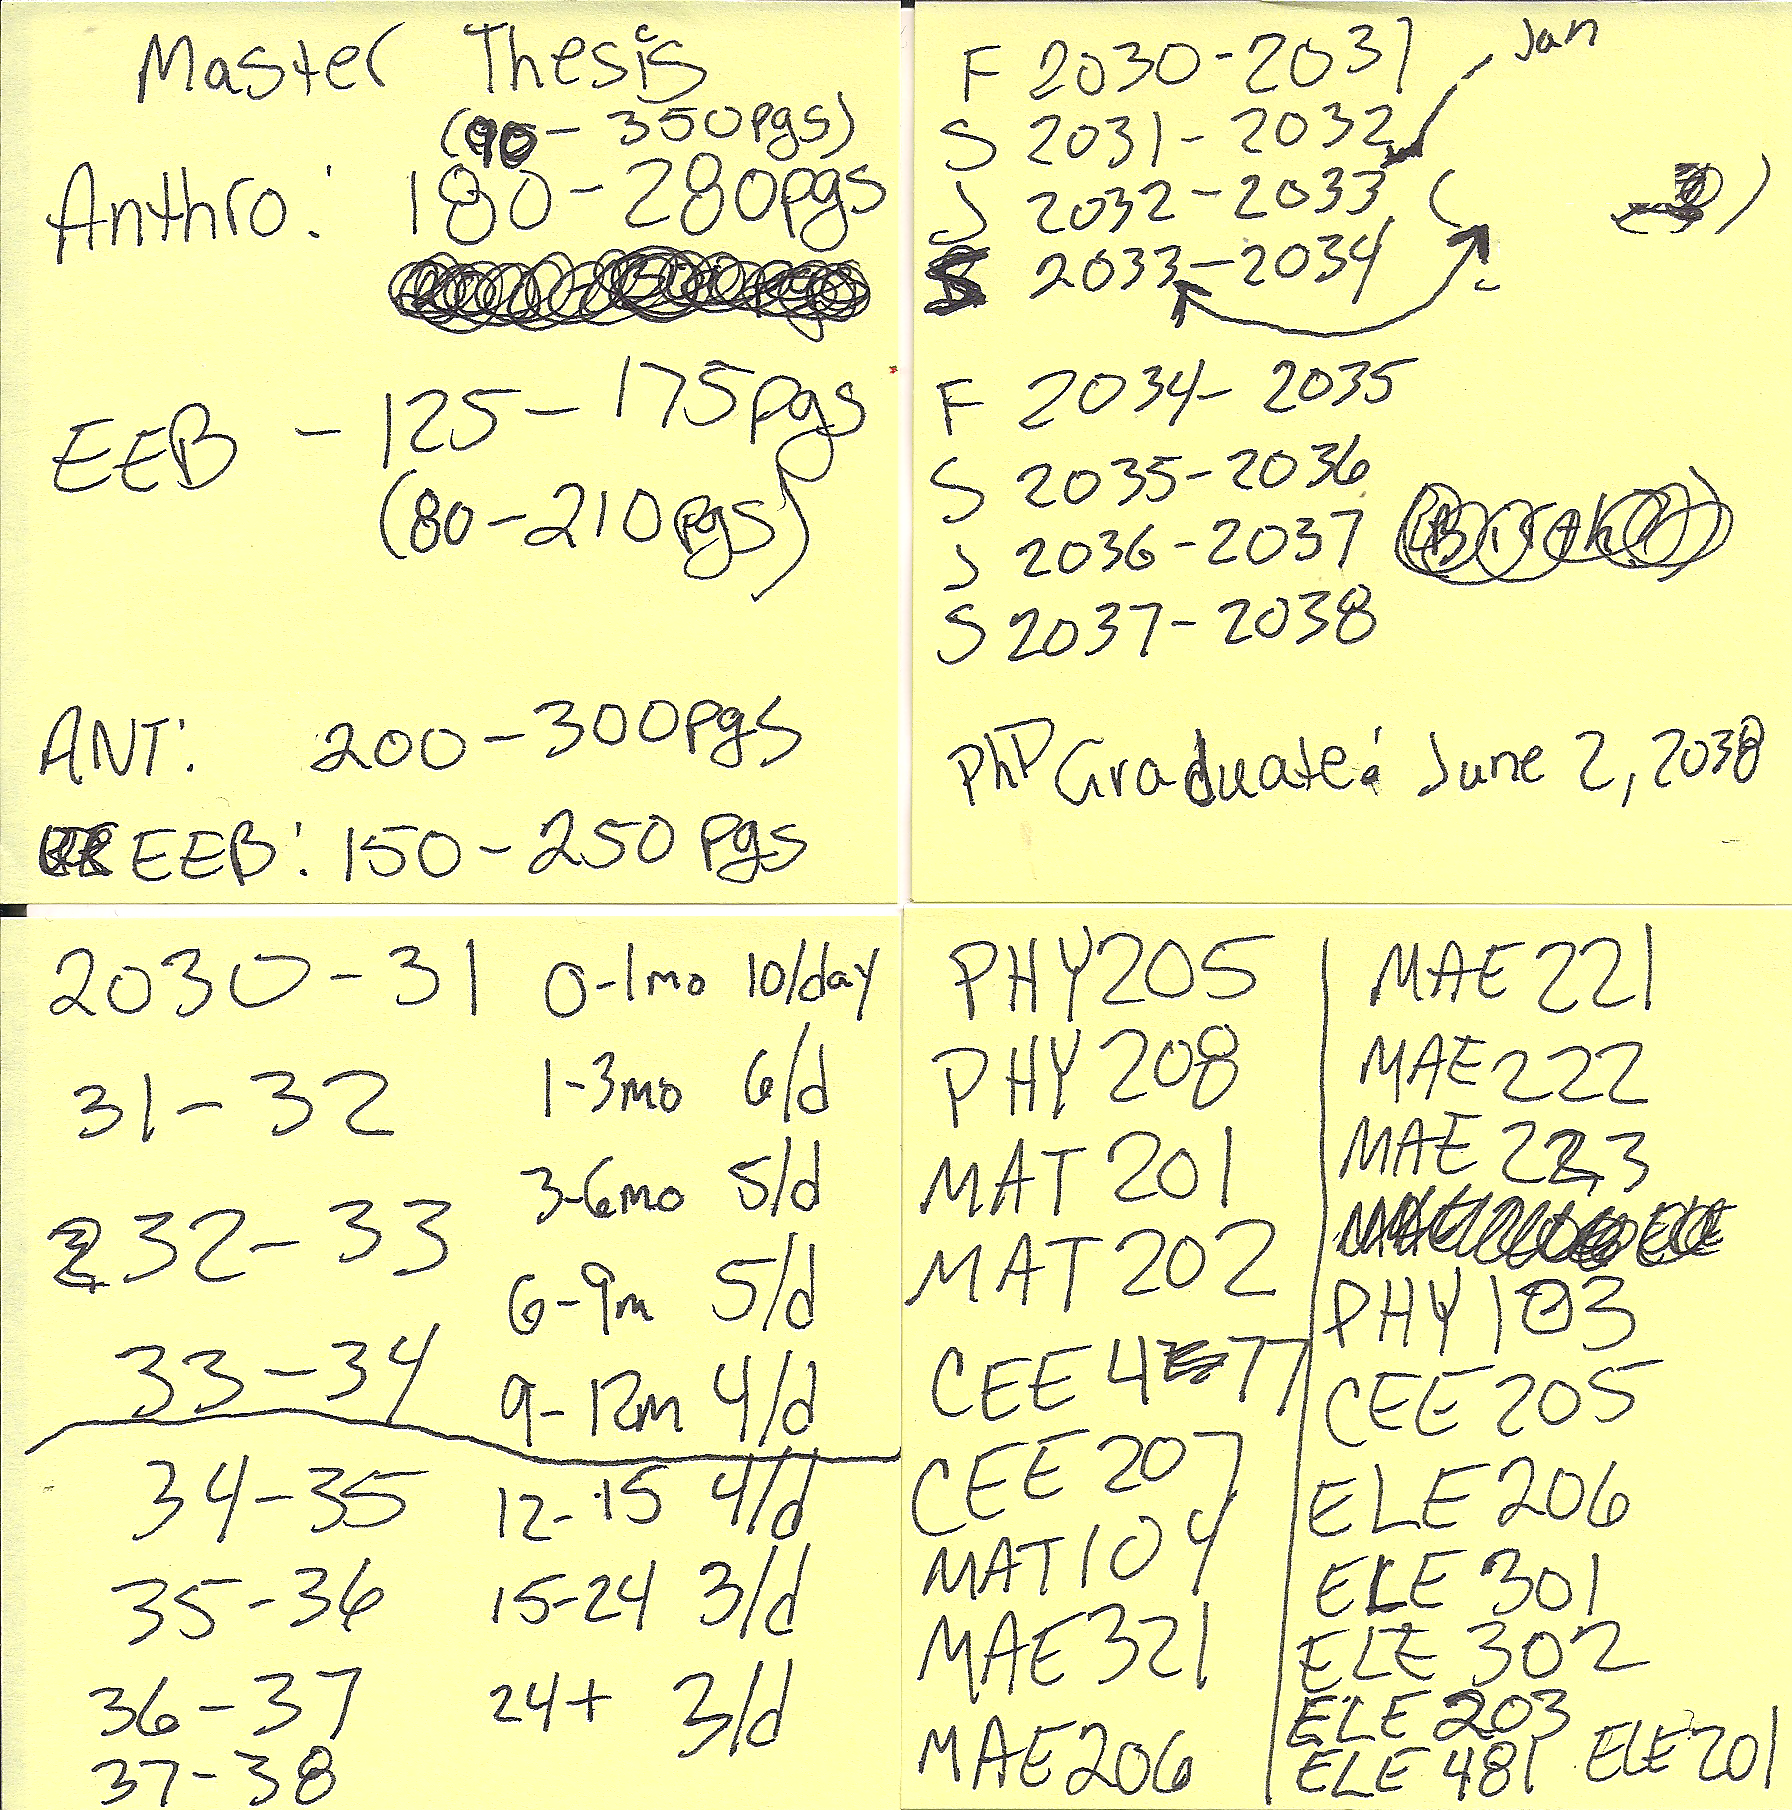 Master Thesis
(90 - 350pgs)
Anthro: 180 - 280pgs
EEB - 125 - 175pgs
(80 - 210pgs)
ANT: 200 - 300pgs
EEB: 150 - 250 pgs
Jan
F 2030 - 2031
S 2031 - 2032
J 2032 - 2033 ( )
S 2033 - 2034
F 2034 - 2035
S 2035 - 2036
J 2036 - 2037
S 2037 - 2038
PhD Graduate: June 2, 2038
2030 - 31 0-1mo 10/day
31 - 32 1-3mo 6/d
32 - 33 3-6mo 5/d
33 - 34 6-9m 5/d
9-12m 4/d
34 - 35 12-15 4/d
35 - 36 15-24 3/d
36 - 37 24+ 3/d
37 - 38
PHY 205
PHY 208
MAT 201
MAT 202
CEE 477
CEE 207
MAT 104
MAE 321
MAE 206
MAE 221
MAE 222
MAE 223
PHY 103
CEE 205
ELE 206
ELE 301
ELE 302
ELE 203
ELE 481 ELE 201